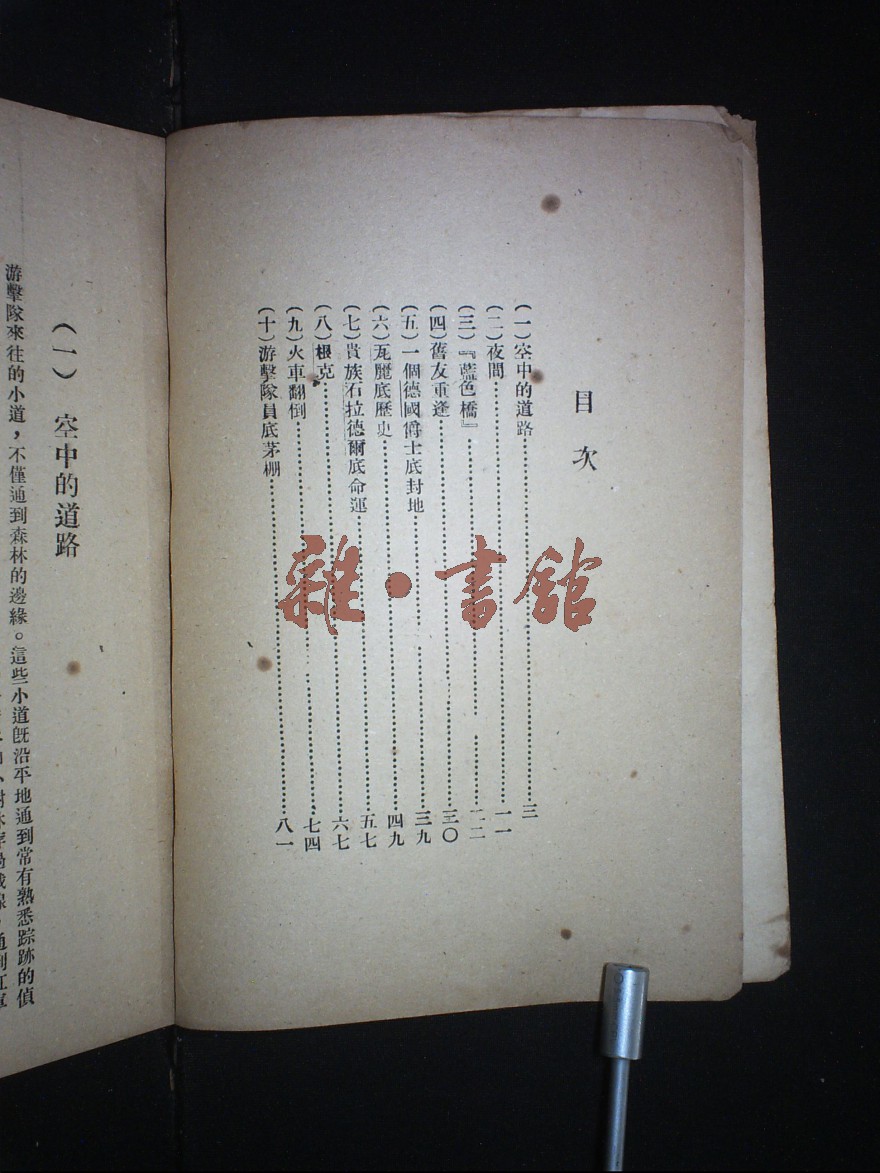 目次
(一)空中的道路……三
(二)夜間……一一
(三)『藍色橋』……二二
(四)舊友重逢……三〇
(五)一個德國爵士底封地……三九
(六)瓦麗底歷史……四九
(七)貴族石拉德爾底命運……五七
(八)根克……六七
(九)火車翻倒……七四
(十)游擊隊員底茅棚……八一
雜·書館
(一) 空中的道路
游擊隊來往的小道,不僅通到森林的邊緣。這些小道旣沿平地通到常有熟悉踪跡的偵